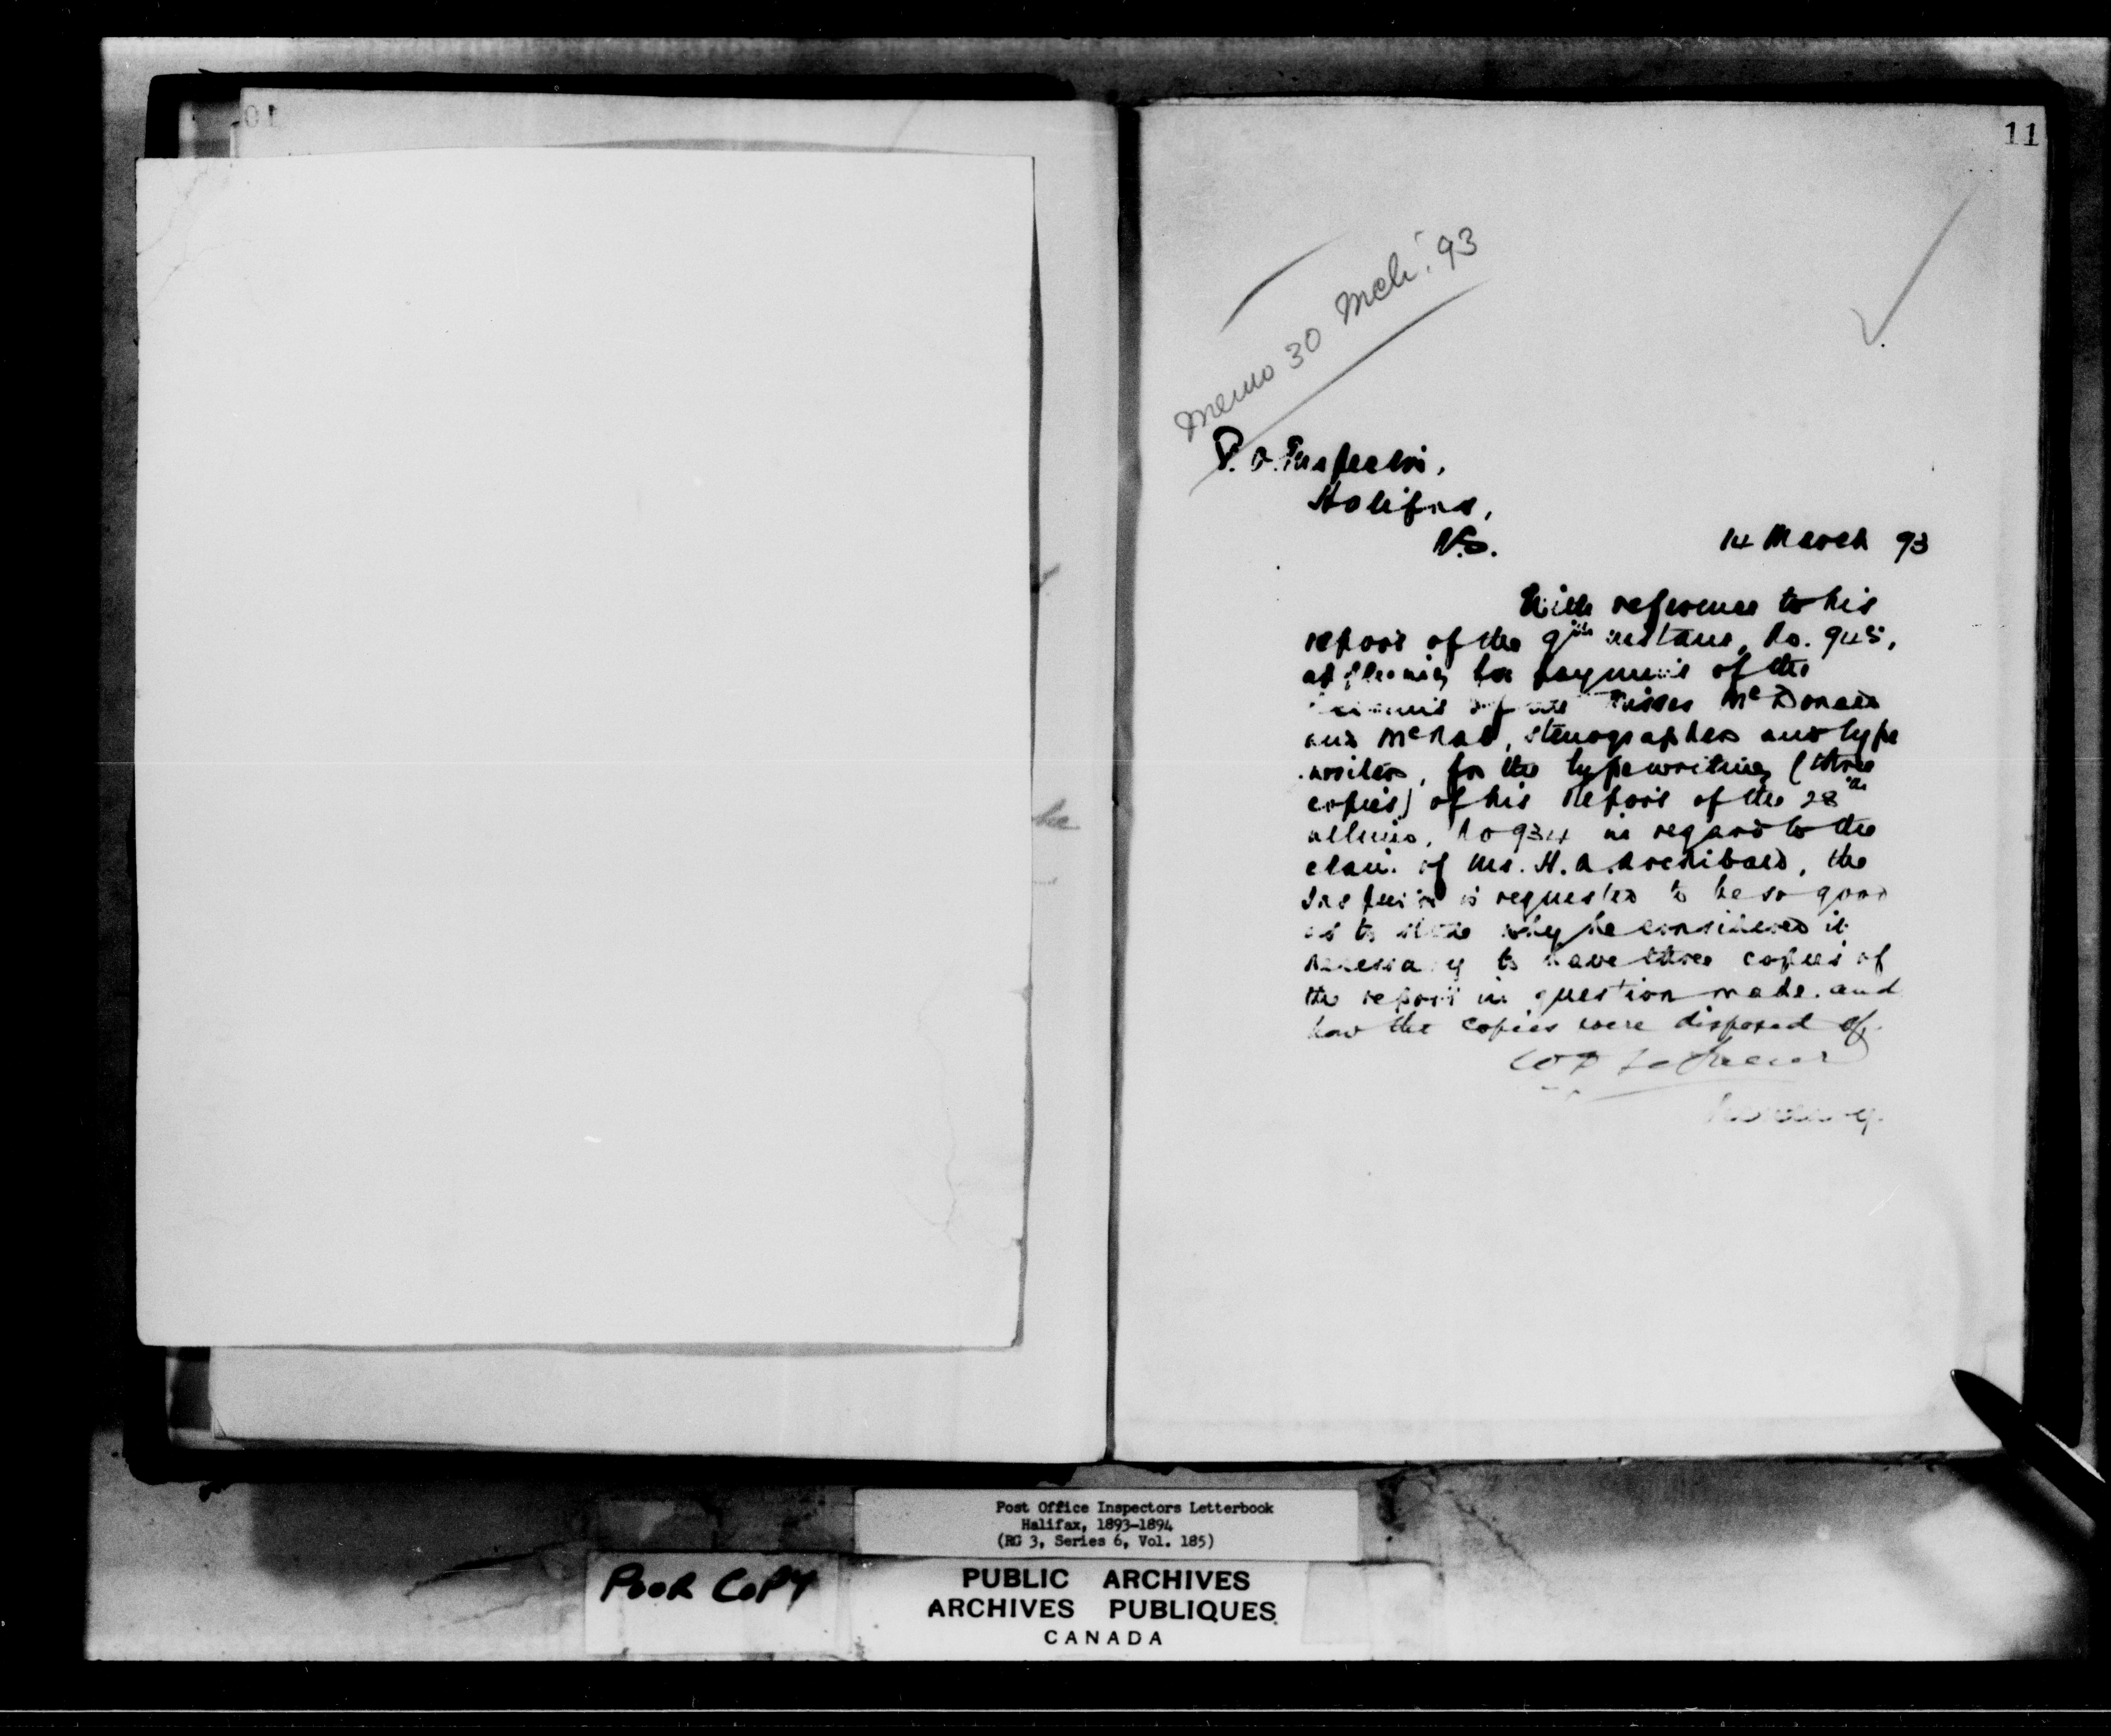 11
Memo 30 Mch. 93
P.O. Inspector,
Halifax,
N.S.
14 March 93
With reference to his
report of the 9th instant, No. 945,
applying for payment of the
of the Misses McDonald
and McRae, stenographers and type
writers, for the typewriting (three
copies) of his report of the 28th
ultimo, No 934 in regard to the
claim of Mr. H. A. Archibald, the
Inspector is requested to be so good
as to state why he considered it
necessary to have three copies of
the report in question made and
how the copies were disposed of.
Post Office Inspectors Letterbook
Halifax, 1893-1894
(RG 3, Series 6, Vol. 185)
POOR COPY
PUBLIC ARCHIVES
ARCHIVES PUBLIQUES
CANADA